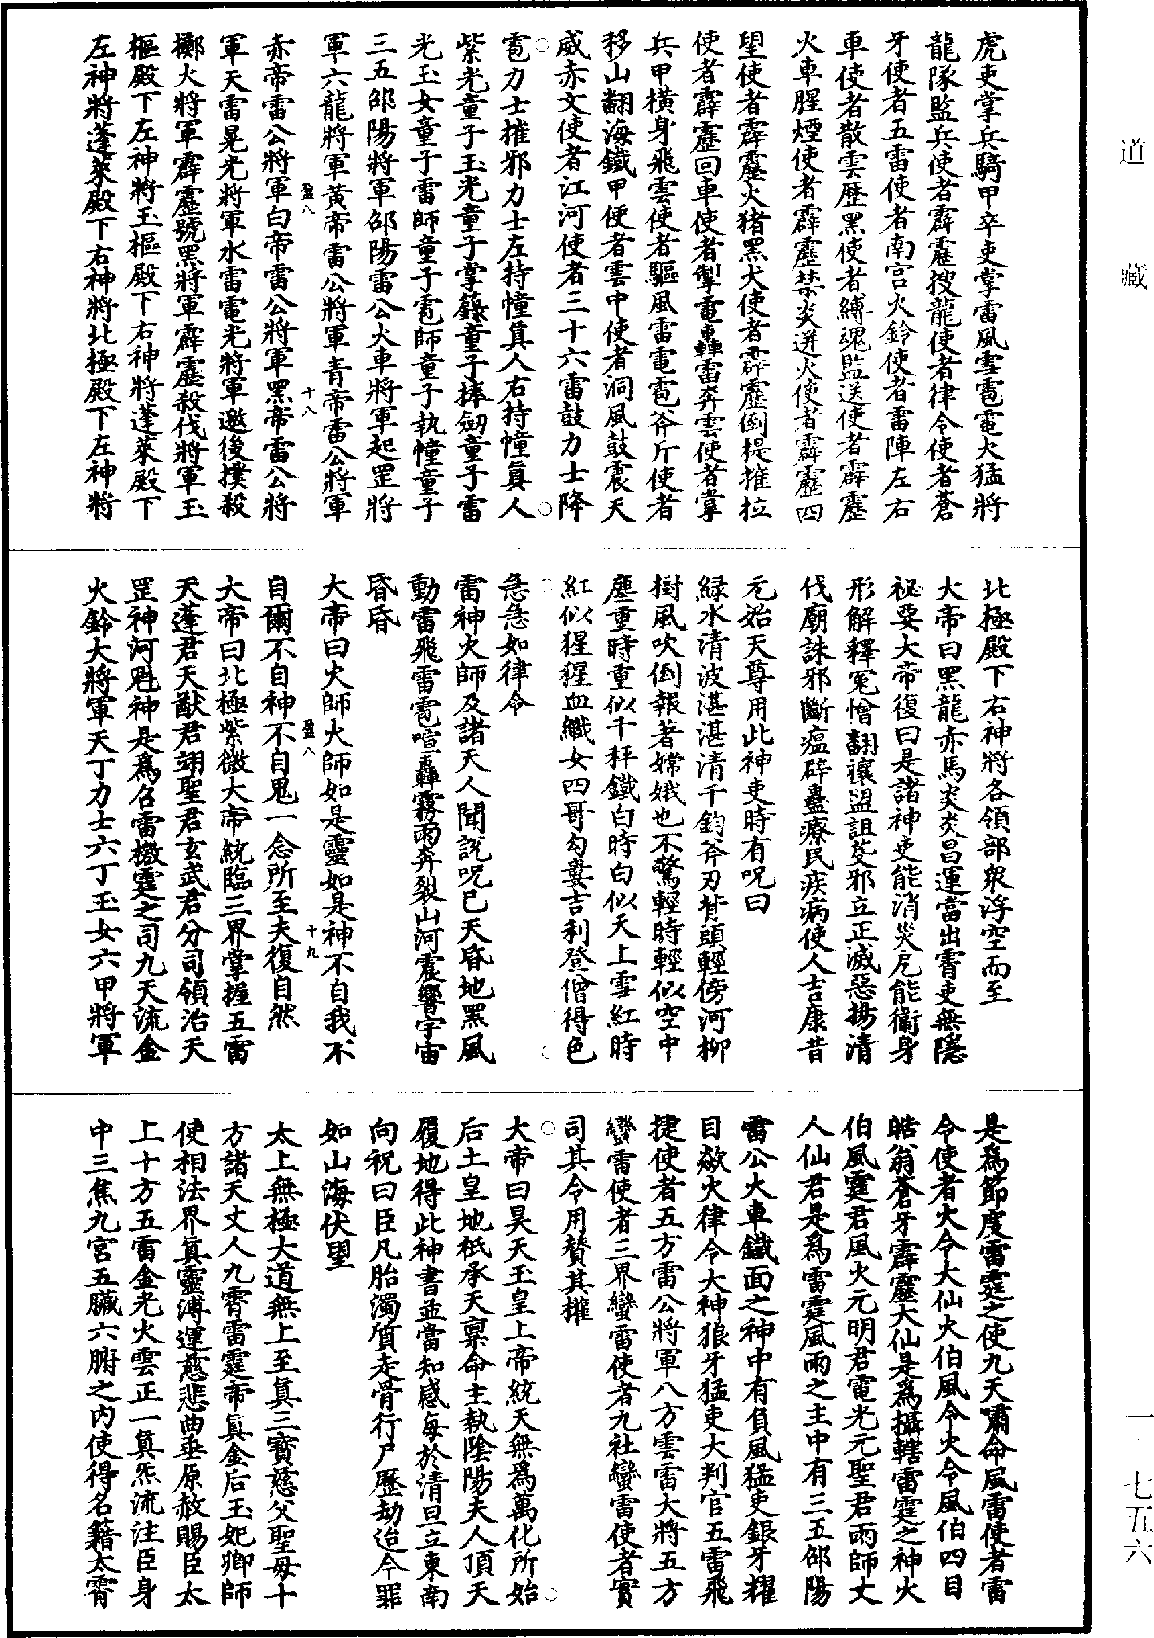 道藏
虎吏掌兵騎甲卒吏掌雷風雪雹電火猛將
龍隊監兵使者霹靂搜龍使者律令使者蒼
牙使者五雷使者南宮火鈴使者雷陣左右
車使者散雲歷黑使者縛魂監送使者霹靂
火車腥煙使者霹靂禁炎迸火使者霹靂四
望使者霹靂火猪黑犬使者霹靂倒提摧拉
使者霹靂回車使者掣電轟雷奔雲使者掌
兵甲橫身飛雲使者驅風雷電雹斧斤使者
移山翻海鐵甲使者雲中使者洞風鼓震天
威赤文使者江河使者三十六雷鼓力士降
雹力士摧邪力士左持幢真人右持幢真人
紫光童子玉光童子掌籙童子捧劒童子雷
光玉女童子雷師童子雹師童子執幢童子
三五邵陽將軍邵陽雷公火車將軍起罡將
軍六龍將軍黃帝雷公將軍青帝雷公將軍
盈八
十八
赤帝雷公將軍白帝雷公將軍黑帝雷公將
軍天雷晃光將軍水雷電光將軍邀後撲殺
擲火將軍霹靂號黑將軍霹靂殺伐將軍玉
樞殿下左神將玉樞殿下右神將蓬萊殿下
左神將蓬萊殿下右神將北極殿下左神將
北極殿下右神將各領部衆浮空而至
大帝曰黑龍赤馬炎炎昌運當出霄吏無隱
祕要大帝復曰是諸神吏能消災厄能衞身
形解釋冤憎翻禳盟詛芟邪立正滅惡揚清
伐廟誅邪斷瘟碎蠱療民疾病使人吉康昔
元始天尊用此神吏時有呪曰
綠水清波湛湛清千鈞斧刃背頭輕傍河柳
樹風吹倒報著嫦娥也不驚輕時輕似空中
塵重時重似千秤鐵白時白似天上雪紅時
紅似猩猩血纖女四哥勾婁吉利登僧得色
急急如律令
雷神火師及諸天人聞說呪已天昏地黑風
動雷飛雷雹喧轟霧雨奔裂山河震響宇宙
昏昏
大帝曰火師火師如是靈如是神不自我不
盈八
十九
自爾不自神不自鬼一念所至夫復自然
大帝曰北極紫微大帝統臨三界掌握五雷
天蓬君天猷君翊聖君玄武君分司領治天
罡神河魁神是爲召雷檄霆之司九天流金
火鈴大將軍天丁力士六丁玉女六甲將軍
是爲節度雷霆之使九天嘯命風雷使者雷
令使者火令大仙火伯風令火令風伯四目
皓翁蒼牙霹靂大仙是爲攝轄雷霆之神火
伯風霆君風火元明君電光元聖君雨師丈
人仙君是爲雷霆風雨之主中有三五邵陽
雷公火車鐵面之神中有負風猛吏銀牙耀
目欻火律令大神狼牙猛吏大判官五雷飛
捷使者五方雷公將軍八方雲雷大將五方
蠻雷使者三界蠻雷使者九社蠻雷使者實
司其令用贊其權
大帝曰昊天玉皇上帝統天無爲萬化所始
后土皇地祇承天稟命主執陰陽夫人頂天
履地得此神書並當知感每於清旦立東南
向祝曰臣凡胎濁質走骨行尸歷劫迨今罪
如山海伏望
太上無極大道無上至真三寶慈父聖母十
方諸天丈人九霄雷霆帝真金后玉妃卿師
使相法界真靈溥運慈悲曲垂原赦賜臣太
上十方五雷金光火雲正一真炁流注臣身
中三焦九宮五臟六腑之内使得名籍太霄
一·七五六